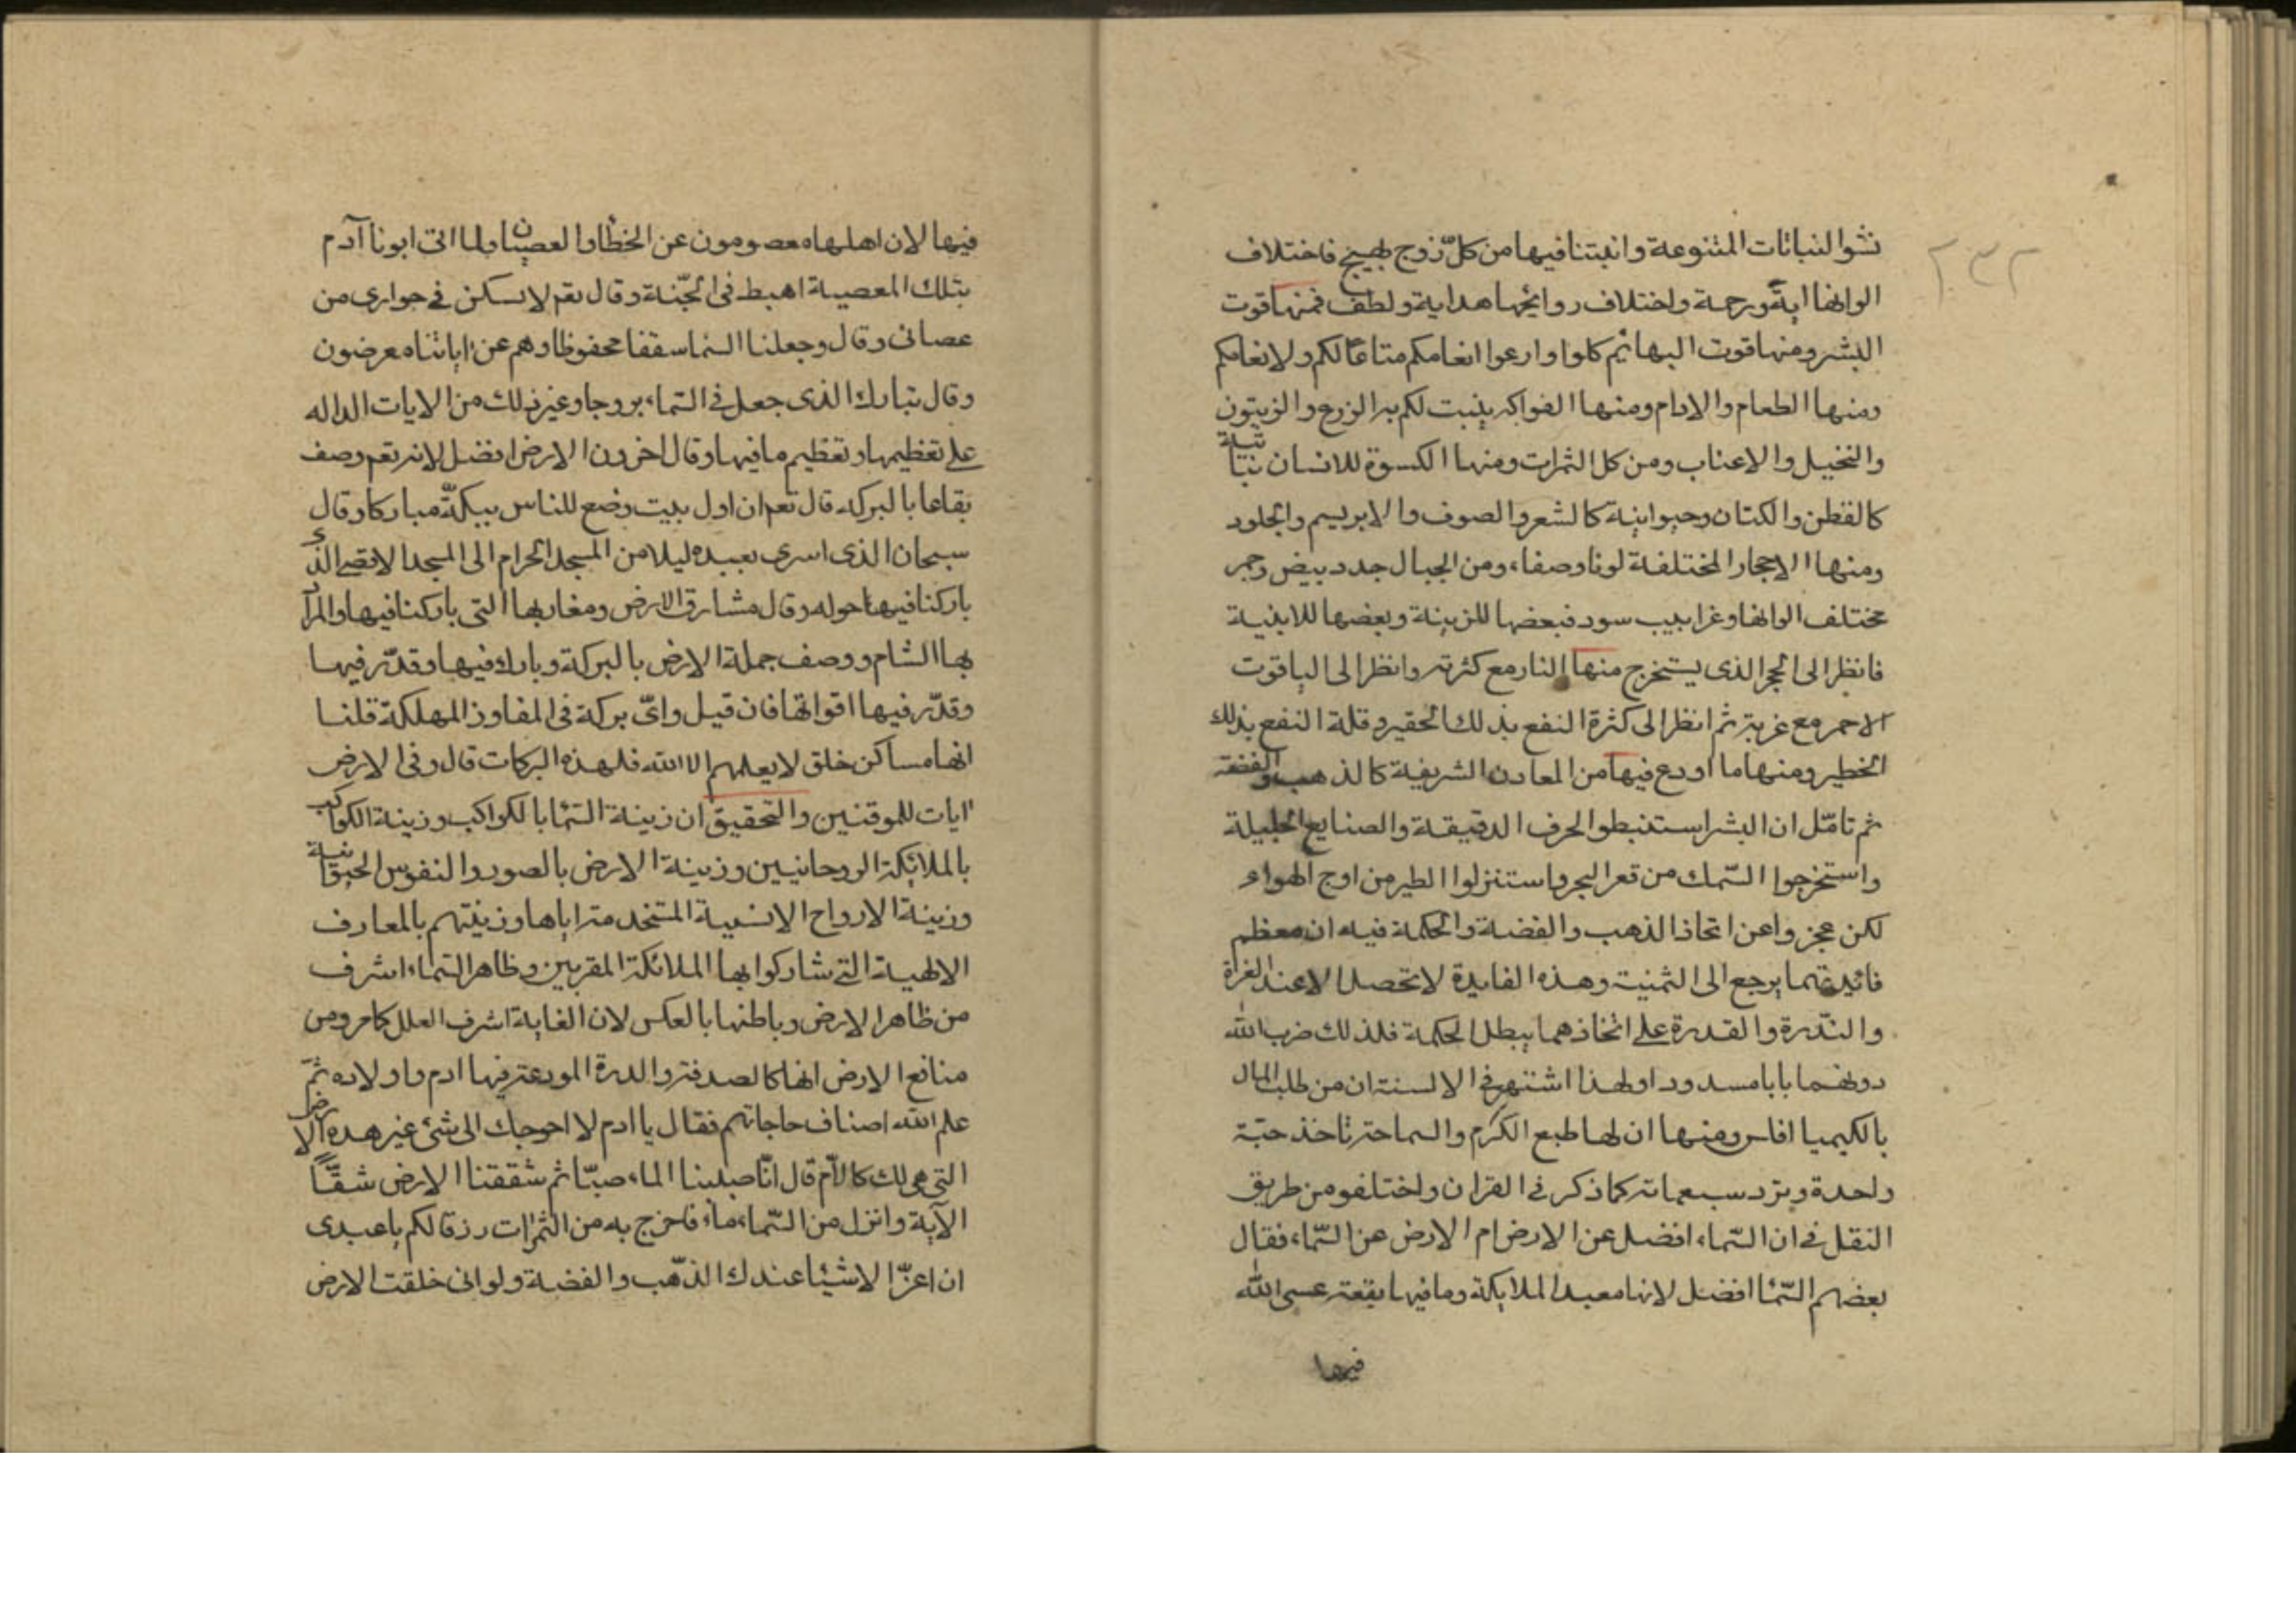 ٢٣٢
نشو النباتات المتنوعة وانبتنا فيها من كلّ زوج بهيج فاختلاف
الوانها اية ورحمة واختلاف روايحها هداية ولطف فمنها قوت
البشر ومنها قوت البهائم كلوا وارعوا انعامكم متاعًا لكم ولانعامكم
ومنها الطعام والادام ومنها الفواكه ينبت لكم به الزرع والزيتون
والنخيل والاعناب ومن كل الثمرات ومنها الكسوة للانسان نباتية
كالقطن والكتان وحيوانية كالشعر والصوف والابريسم والجلود
ومنها الاحجار المختلفة لونا وصفاء ومن الجبال جدد بيض وحمر
مختلف الوانها وغرابيب سود فبعضها للزينة وبعضها للابنية
فانظر الى الحجر الذى يستخرج منها النار مع كثرته وانظر الى الياقوت
الاحمر مع عزته ثم انظر الى كثرة النفع بذلك الحقير وقلة النفع بذلك
الخطير ومنها ما اودع فيها من المعادن الشريفة كالذهب والفضة
ثم تامّل ان البشر استنبطوا الحرف الدقيقة والصنايع الجليلة
واستخرجوا السّمك من قعر البحر واستنزلوا الطير من اوج الهواء
لكن عجزوا عن اتخاذ الذهب والفضة والحكمة فيه ان معظم
فائدتهما يرجع الى الثمنية وهذه الفايدة لا تحصل الا عند العزة
والنّدرة والقدرة على اتخاذهما يبطل الحكمة فلذلك ضرب الله
دونهما بابا مسدودا ولهذا اشتهر فى الالسنة ان من طلب المال
بالكيميا افلس ومنها ان لها طبع الكرم والسماحة تاخذ حبّة
واحدة وترد سبعمائة كما ذكر فى القران واختلفو من طريق
النقل فى ان السّماء افضل عن الارض ام الارض عن السّماء فقال
بعضهم السّما افضل لانها معبد الملايكة وما فيها بقعة عسى الله
فيها
فيها لان اهلها معصومون عن الخطا والعصيان ولما اتى ابونا آدم
بتلك المعصية اهبط فى الجنّة وقال تعم لا يسكن فى جوارى من
عصانى وقال وجعلنا السما سقفا محفوظا وهم عن اياتنا معرضون
وقال تبارك الذى جعل فى السّماء بروجا وغير ذلك من الايات الداله
على تعظيمها وتعظيم ما فيها وقال اخرون الارض افضل لانه تعم وصف
بقاعا بالبركه قال تعم ان اول بيت وضع للناس ببكّة مباركا وقال
سبحان الذى اسرى بعبده ليلا من المسجد الحرام الى المسجد الاقصى الذى
باركنا فيها حوله وقال مشارق الارض ومغاربها التى باركنا فيها والمراد
بها الشام ووصف جملة الارض بالبركة وبارك فيها وقدّر فيها
وقدّر فيها اقواتها فان قيل واىّ بركة فى المفاوز المهلكة قلنا
انها مساكن خلق لا يعلمهم الا الله فلهذه البركات قال وفى الارض
ايات للموقنين والتحقيق ان زينة السّما بالكواكب وزينة الكواكب
بالملائكة الروحانيين وزينة الارض بالصور والنفوس الحيوانية
وزينة الارواح الانسية المتخد مة اياها وزينتهم بالمعارف
الالهية التى شاركوا بها الملائكة المقربين وظاهر السّماء اشرف
من ظاهر الارض وباطنها بالعكس لان الغاية اشرف العلل كما مر ومن
منافع الارض انها كالصدفة والدرة المودعة فيها ادم واولاده ثمّ
علم الله اصناف حاجاتهم فقال يا ادم لا احوجك الى شئ غير هذه الارض
التى هى لك كالاّم قال انّا صببنا الماء صبّا ثم شققنا الارض شقًّا
الآية وانزل من السّماء ماء فاخرج به من الثمرات رزقا لكم يا عبدى
ان اعزّ الاشيئا عندك الذّهب والفضة ولو انى خلقت الارض